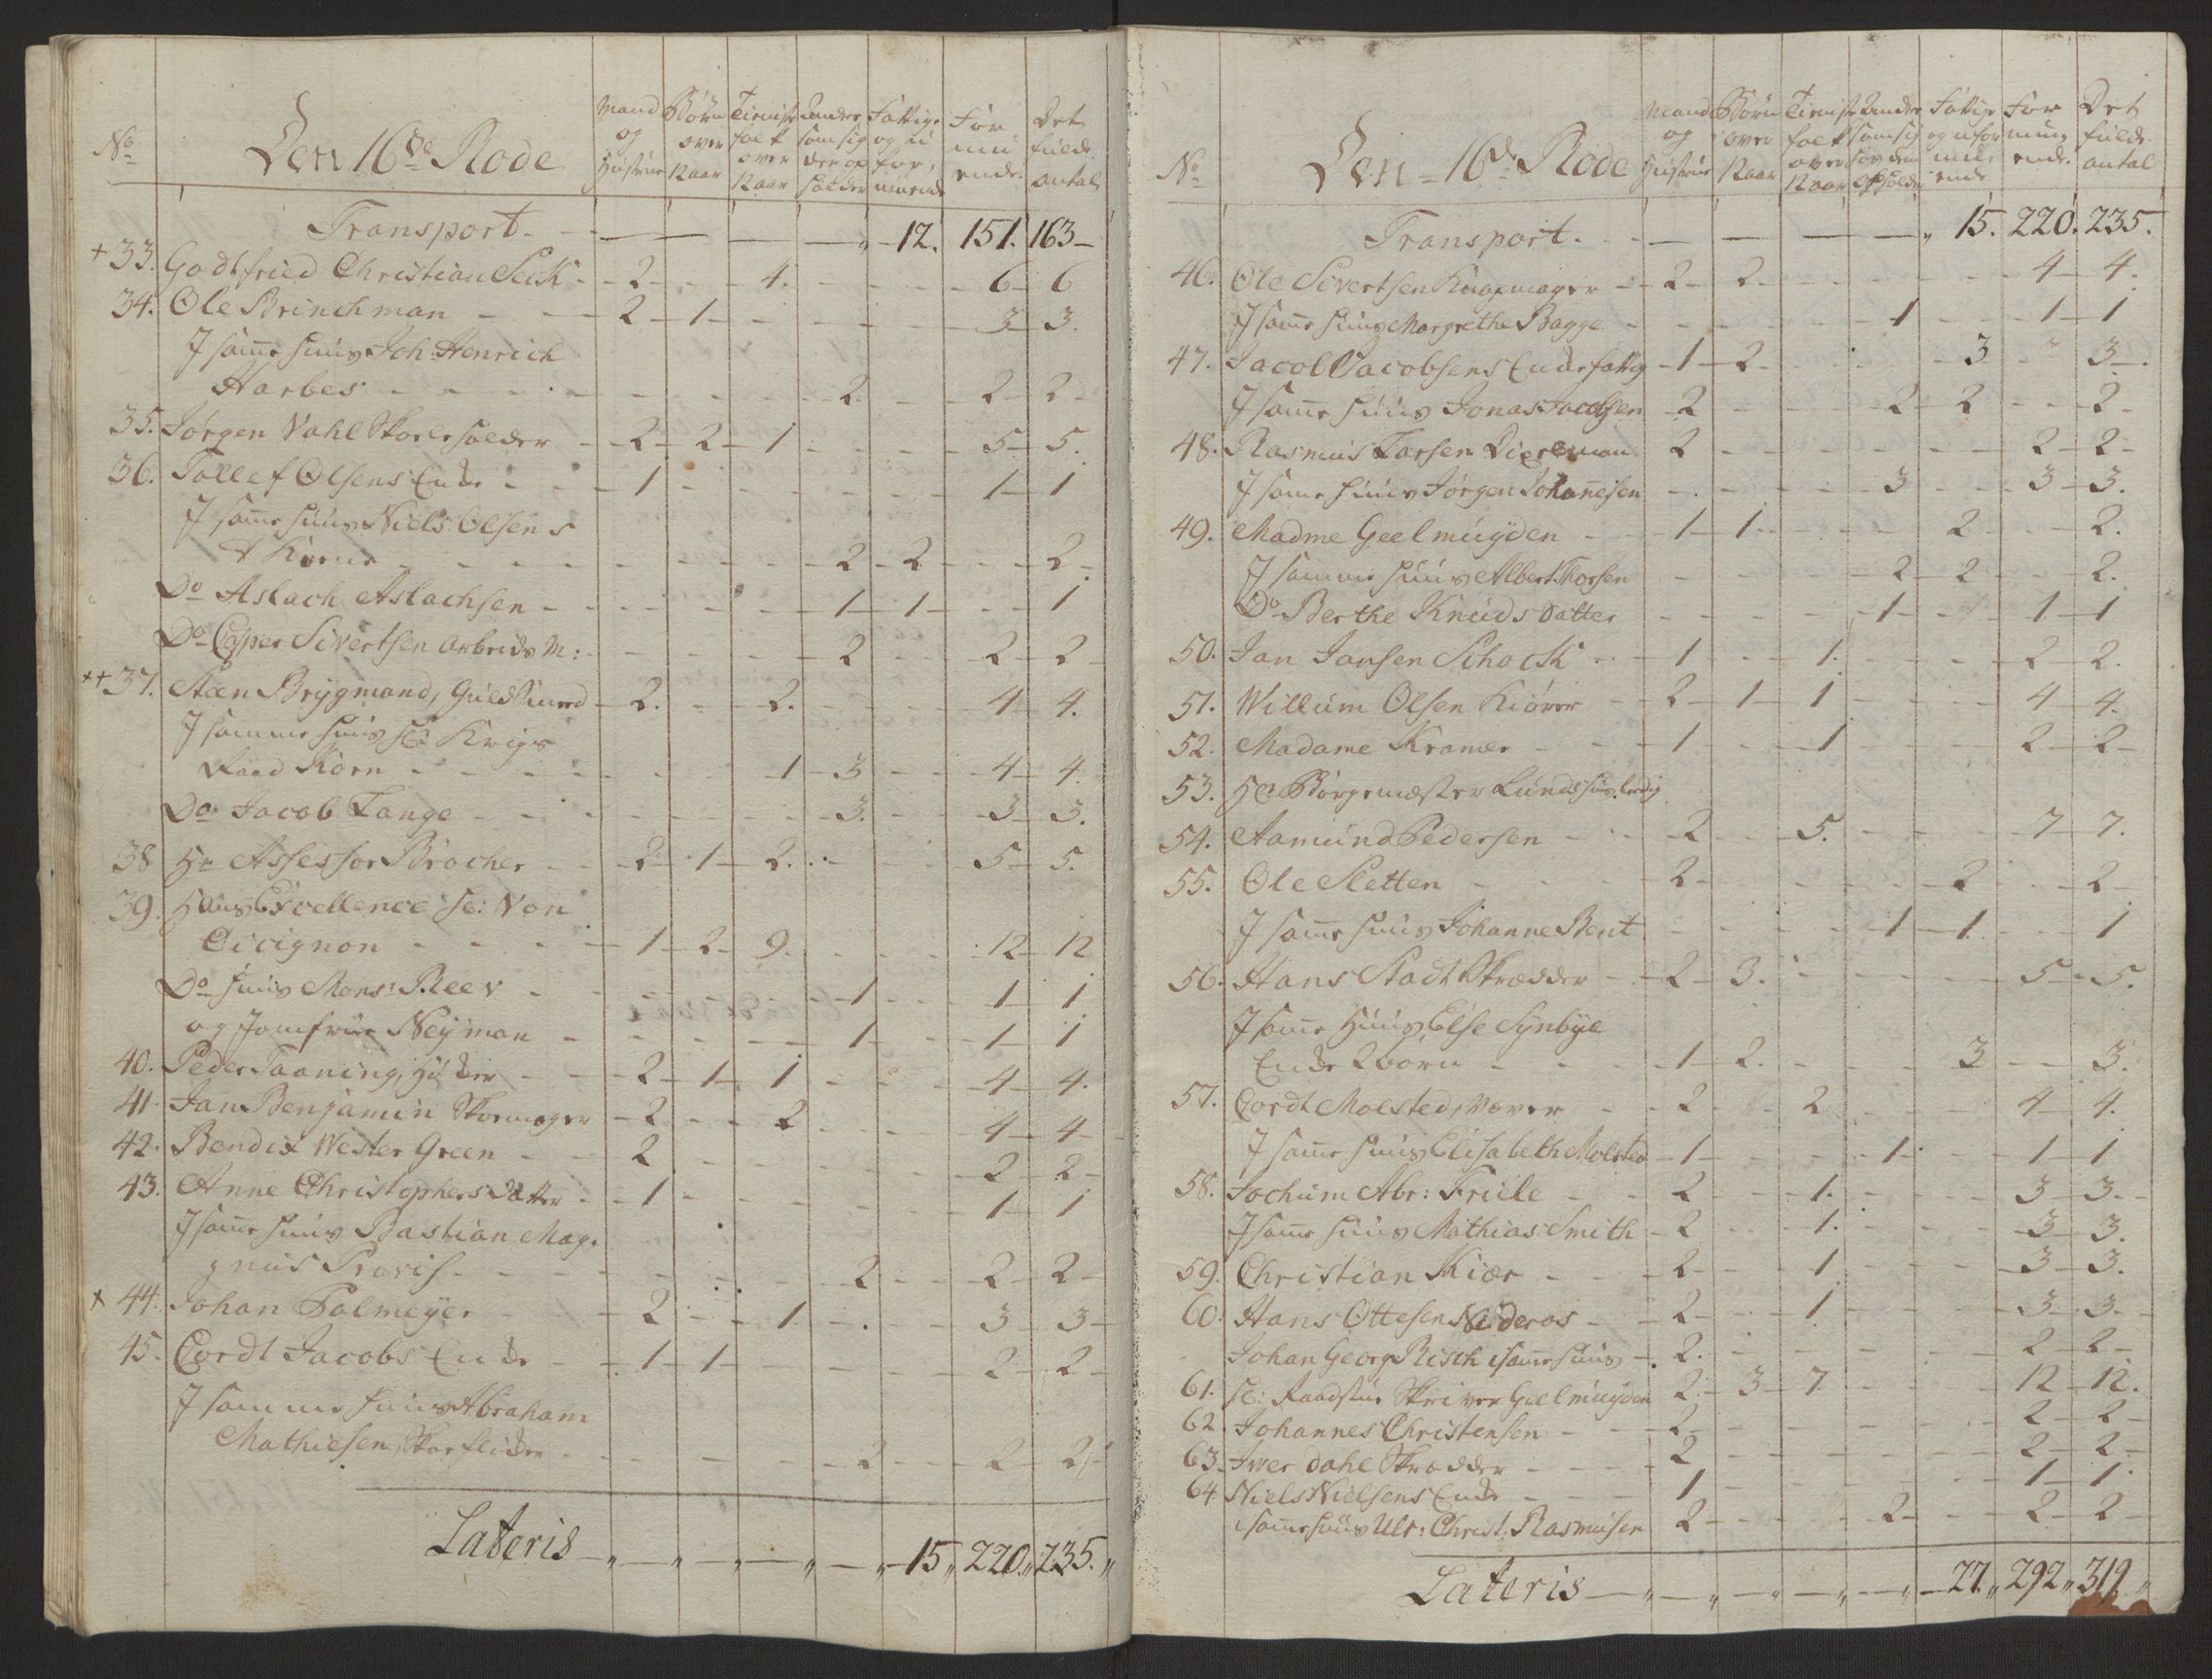 No Den 16de Rode Mand og Hustrue Børn over 12 aar Tieniste folk over 12 aar Andre som sig der op holder Fattige og u for muende For mu ende Det fulde antal
Transport - - - - - " - 12. 151. 163 -
+ 33. Godtfried Christian Seck - - 2 - - 4. - - - 6 - 6
34. Ole Brinchman - - 2 - 1 - - - - 3 - 3.
I same huus Joh: Henrich
Harbes - - - - 2 - - 2 - 2 -
35. Jørgen Vahl Skoeleholder - 2 - 2 - 1 - - - 5 - 5.
36. Tollef Olsens Enke - - 1 - - - - - 1 - 1
I same huus Niels Olsen s
Kone - - - - 2 - 2 - - 2 -
Do Aslach Aslachsen - - - - 1 - 1 - - 1
Do Casper Sivertsen arbeids M: - - - 2 - - 2 - 2 -
++ 37. Aen Brygmand, Guldsmed - 2. - - 2. - - - 4 - 4.
I samme huus Sl Krigs
Raad Korn - - - - 1 - 3 - - 4 - 4.
Do Jacob Lange - - - - 3. - - 3 - 3.
38 Hr Assessor Brocher - - 2 - 1 - 2. - - - 5 - 5.
39. Hans Excellence Sl: Von
Cicignon - - - 1 - 2 - 9. - - - 12 - 12
Do huus Mons: Reev - - - - 1 - - 1 - 1
og Jomfrue Neyman - - - - 1 - - 1 - 1
40. Peder Taaning, - - 2 - 1 - 1 - - - 4 - 4.
41. Jan Benjamin Skoemager - 2 - - 2 - - - 4 - 4 -
42. Bendix Wester Green - - 2 - - - - - 2 - 2 -
43. Anne Christophers Datter - - 1 - - - - - 1 - 1
I same huus Bastian Mag-
gnus Provis - - - - 2 - - 2 - 2 -
+ 44. Johan Palmeyer - - 2 - - 1 - - - 3 - 3 -
45. Cordt Jacobs Enke - - 1 - 1 - - - - 2 - 2 -
I samme huus Abraham
Mathiesen, Skoeflicker - - - - 2 - - 2 - 2 -
Lateris - " - " - " - " - " - 15 " 220 " 235. "
No Den 16de Rode Mand og Hustrue Børn over 12 aar Tieniste folk over 12 aar Andre som sig hos dem opholder Fattige og ufor mu ende For mu ende. Det fulde antal
Transport. - - - - - " 15. 220. 235.
46. Ole Sivertsen Knapmager - - 2 - 2 - - - - 4 - 4.
I same huus Margrethe Bagge - - - - 1 - - 1 - 1
47. Jacob Jacobsens Enke fattig - 1 - 2 - - - 3 - - 3 -
I same huus Jonas Jacobsen - 2 - - - 2 - 2 - - 2 -
48. Rasmus Larsen 2 - - - - - 2 - 2 -
I same huus Jørgen Johanesen - - - - 3 - - 3 - 3.
49. Madme Geelmuyden - - 1 - 1 - - - 2 - - 2.
I samme huus Albert Thorsen - - - 2 - 2 - - 2.
Do Berthe Knuds Datter - - - 1 - - 1 - 1
50. Jan Jansen Schock - - 1 - - 1. - - - 2 - 2.
51. Willum Olsen Kiører - 2 - 1 - 1 - - - 4 - 4.
52. Madame Kramer - - 1 - - 1 - - - 2 - 2 -
53. Hr Borgemæster Lunds huus, ledig
54. Aamund Pedersen - - 2 - - 5. - - - 7 - 7.
55. Ole Sletten - - 2 - - - - 2 - - 2
I same huus Johanne Bent - - - 1 - 1 - - 1
56. Hans Stadt Skrædder - - 2 - 3. - - - - 5 - 5.
I same Huus Else Synbye
Enke 2 børn - - - 1 - 2. - - - 3 - - 3.
57. Cordt Molsted, Væver - - 2 - - 2 - - - 4 - 4.
I same huus Elisabeth Molsted - 1 - - - 1. - - 1 - 1
58. Jochum Abr: Friele - - 2 - - 1. - - - 3 - 3 -
I same huus Mathias Smith - 2 - - 1. - - - 3 - 3.
59. Christian Kiær - - 2 - - 1 - - - 3 - 3.
60. Hans Ottesen Nideros - - 2 - - 1 - - - 3 - 3 -
Johan Georg Risch isame huus - 2. - - - - - 2 - 2 -
61. Sl: Raadstue Skriver Geelmuyden 2 - 3 - 7 - - - 12 - 12.
62. Johannes Christensen - - 2 - - - - - 2 - 2 -
63. Iver Dahl Skrædder - - 2 - - - - - 2 - 2 -
64 Niels Nielsens Enke - - 1 - - - - - 1 - 1.
isame huus Ulr: Christ: Rasmusen 2 - - - 2 - - 2 - 2 -
Lateris - " - " - " - " - " - 27 " 292 " 319 "